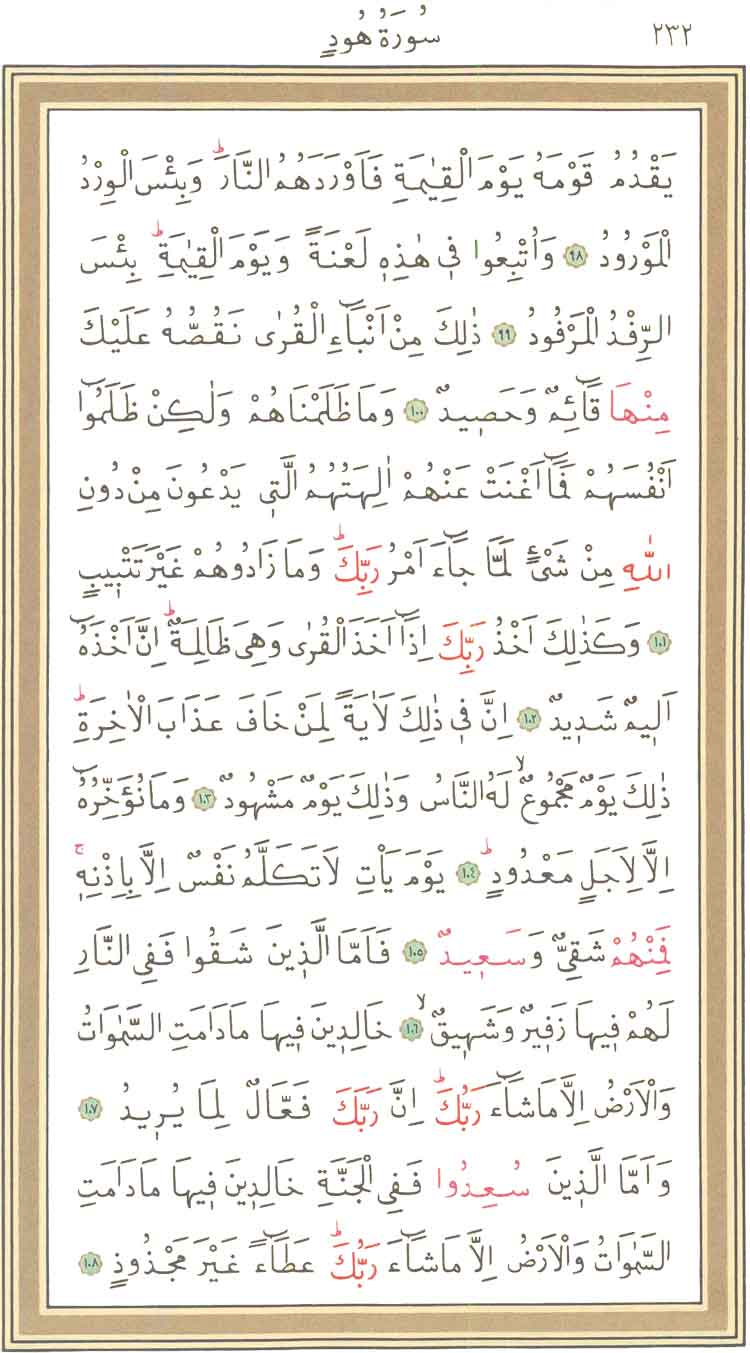 ٢٣٢ سُورَةُ هُودٍ
يَقْدُمُ قَوْمَهُ يَوْمَ الْقِيٰمَةِ فَاَوْرَدَهُمُ النَّارَۜ وَبِئْسَ الْوِرْدُ
الْمَوْرُودُ ﴿٩٨﴾ وَاُتْبِعُوا فٖي هٰذِهٖ لَعْنَةً وَيَوْمَ الْقِيٰمَةِۜ بِئْسَ
الرِّفْدُ الْمَرْفُودُ ﴿٩٩﴾ ذٰلِكَ مِنْ اَنْبَٓاءِ الْقُرٰى نَقُصُّهُ عَلَيْكَ
مِنْهَا قَٓائِمٌ وَحَصٖيدٌ ﴿١٠٠﴾ وَمَا ظَلَمْنَاهُمْ وَلٰكِنْ ظَلَمُٓوا
اَنْفُسَهُمْ فَمَٓا اَغْنَتْ عَنْهُمْ اٰلِهَتُهُمُ الَّتٖي يَدْعُونَ مِنْ دُونِ
اللّٰهِ مِنْ شَیْءٍ لَمَّا جَٓاءَ اَمْرُ رَبِّكَۜ وَمَا زَادُوهُمْ غَيْرَ تَتْبٖيبٍ
﴿١٠١﴾ وَكَذٰلِكَ اَخْذُ رَبِّكَ اِذَٓا اَخَذَ الْقُرٰى وَهِيَ ظَالِمَةٌۜ اِنَّ اَخْذَهُٓ
اَلٖيمٌ شَدٖيدٌ ﴿١٠٢﴾ اِنَّ فٖي ذٰلِكَ لَاٰيَةً لِمَنْ خَافَ عَذَابَ الْاٰخِرَةِۜ
ذٰلِكَ يَوْمٌ مَجْمُوعٌۙ لَهُ النَّاسُ وَذٰلِكَ يَوْمٌ مَشْهُودٌ ﴿١٠٣﴾ وَمَا نُؤَخِّرُهُٓ
اِلَّا لِاَجَلٍ مَعْدُودٍۜ ﴿١٠٤﴾ يَوْمَ يَأْتِ لَا تَكَلَّمُ نَفْسٌ اِلَّا بِاِذْنِهٖۚ
فَمِنْهُمْ شَقِيٌّ وَسَعٖيدٌ ﴿١٠٥﴾ فَاَمَّا الَّذٖينَ شَقُوا فَفِي النَّارِ
لَهُمْ فٖيهَا زَفٖيرٌ وَشَهٖيقٌۙ ﴿١٠٦﴾ خَالِدٖينَ فٖيهَا مَا دَامَتِ السَّمٰوَاتُ
وَالْاَرْضُ اِلَّا مَا شَٓاءَ رَبُّكَۜ اِنَّ رَبَّكَ فَعَّالٌ لِمَا يُرٖيدُ ﴿١٠٧﴾
وَاَمَّا الَّذٖينَ سُعِدُوا فَفِي الْجَنَّةِ خَالِدٖينَ فٖيهَا مَا دَامَتِ
السَّمٰوَاتُ وَالْاَرْضُ اِلَّا مَا شَٓاءَ رَبُّكَۜ عَطَٓاءً غَيْرَ مَجْذُوذٍ ﴿١٠٨﴾